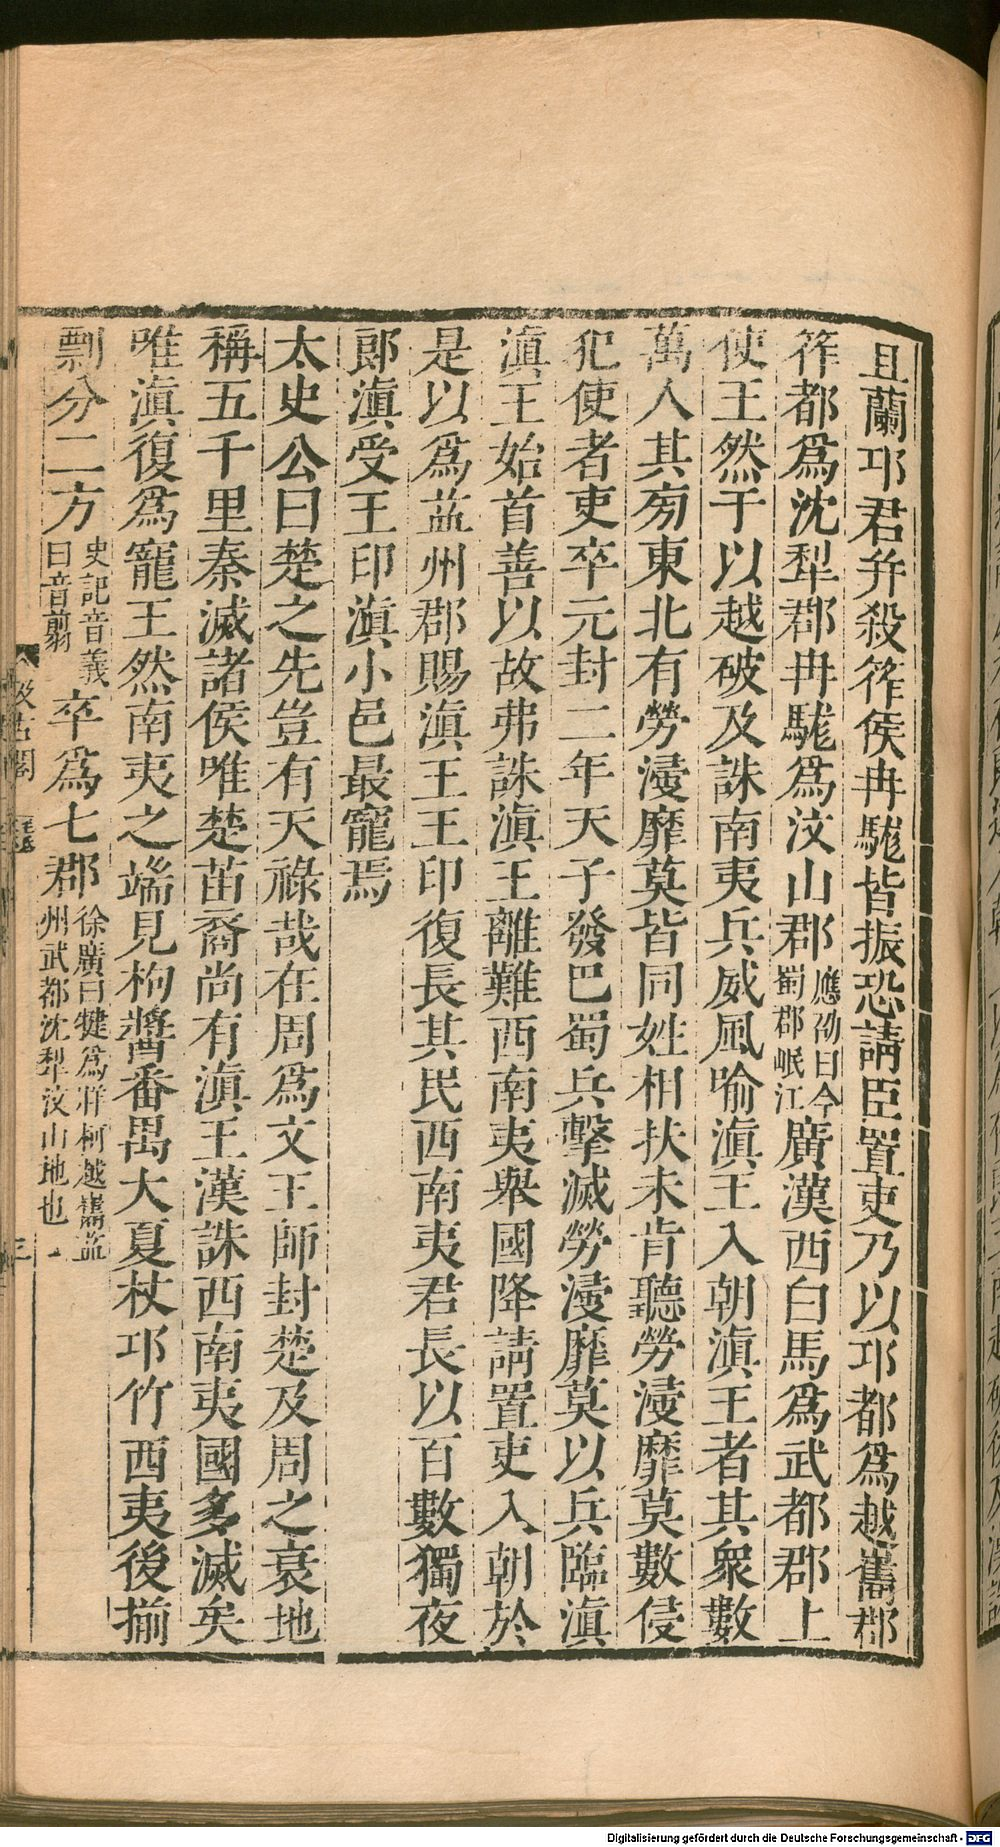 且蘭邛君并殺筰侯冉駹皆振恐請臣置吏乃以邛都爲越嶲郡
筰都爲沈犁郡冉駹爲汶山郡應劭曰今蜀郡岷江廣漢西白馬爲武都郡上
使王然于以越破及誅南夷兵威風喻滇王入朝滇王者其衆數
萬人其旁東北有勞浸靡莫皆同姓相扶未肯聽勞浸靡莫數侵
犯使者吏卒元封二年天子發巴蜀兵擊滅勞浸靡莫以兵臨滇
滇王始首善以故弗誅滇王離難西南夷舉國降請置吏入朝於
是以爲益州郡賜滇王王印復長其民西南夷君長以百數獨夜
郎滇受王印滇小邑最寵焉
太史公曰楚之先豈有天祿哉在周爲文王師封楚及周之衰地
稱五千里秦滅諸侯唯楚苗裔尚有滇王漢誅西南夷國多滅矣
唯滇復爲寵王然南夷之端見枸醬番禺大夏杖邛竹西夷後揃
剽分二方史記音義曰音翦卒爲七郡徐廣曰犍爲牂柯越嶲益州武都沈犁汶山地也
汲古閣
三
Digitalisierung gefördert durch die Deutsche Forschungsgemeinschaft - DFG